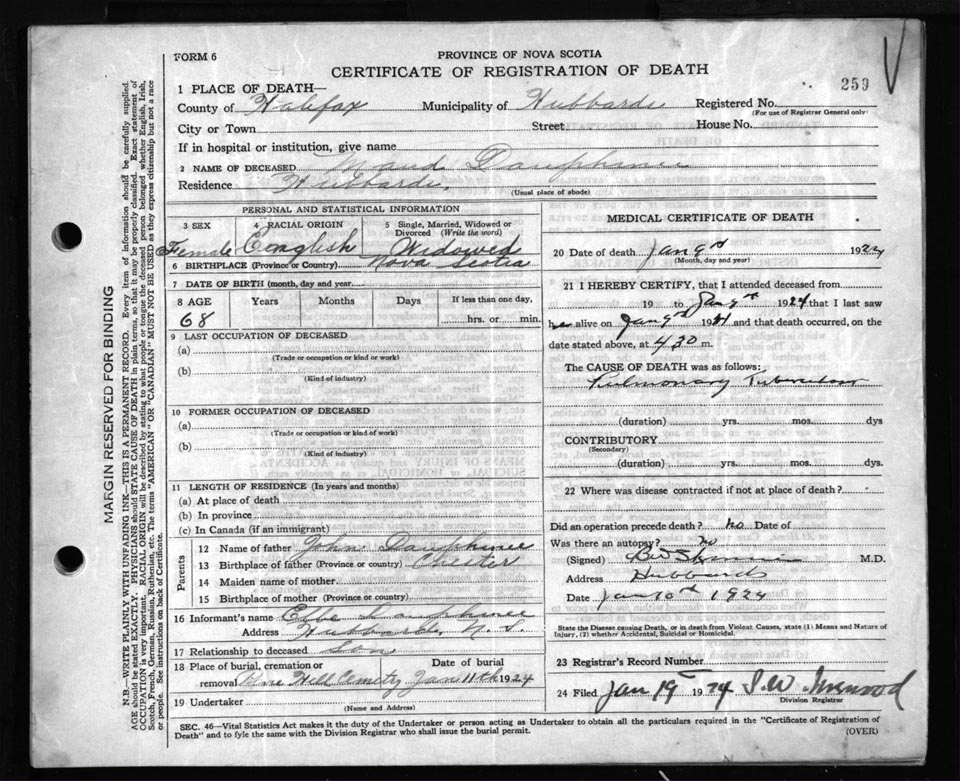 FORM 6
PROVINCE OF NOVA SCOTIA
CERTIFICATE OF REGISTRATION OF DEATH
259
1 PLACE OF DEATH—
County of Halifax Municipality of Hubbards Registered No.
(For use of Registrar General only)
City or Town Street House No.
If in hospital or institution, give name
2 NAME OF DECEASED Maud Dauphinee
Residence Hubbards.
(Usual place of abode)
PERSONAL AND STATISTICAL INFORMATION
3 SEX 4 RACIAL ORIGIN 5 Single, Married, Widowed or Divorced (Write the word)
Female English Widowed
6 BIRTHPLACE (Province or Country) Nova Scotia
7 DATE OF BIRTH (month, day and year)
8 AGE Years Months Days If less than one day,
68 hrs. or min.
9 LAST OCCUPATION OF DECEASED
(a)
(Trade or occupation or kind or work)
(b)
(Kind of industry)
10 FORMER OCCUPATION OF DECEASED
(a)
(Trade or occupation or kind of work)
(b)
(Kind of industry)
11 LENGTH OF RESIDENCE (In years and months)
(a) At place of death
(b) In province
(c) In Canada (if an immigrant)
Parents
12 Name of father John Dauphinee
13 Birthplace of father (Province or country) Chester
14 Maiden name of mother
15 Birthplace of mother (Province or country)
16 Informant's name Dauphinee
Address Hubbards, N.S.
17 Relationship to deceased Son
18 Place of burial, cremation or removal Date of burial
Pine Hill Cemetry Jan 11th 1924
19 Undertaker
(Name and Address)
MEDICAL CERTIFICATE OF DEATH
20 Date of death Jan 9th 1924
(Month, day and year)
21 I HEREBY CERTIFY, that I attended deceased from
19 to Jan 9th 1924 that I last saw
her alive on Jan 9th 1924 and that death occurred, on the
date stated above, at 430 m.
The CAUSE OF DEATH was as follows:
Pulmonary Tuberculosis
(duration) yrs. mos. dys
CONTRIBUTORY
(Secondary)
(duration) yrs. mos. dys.
22 Where was disease contracted if not at place of death?
Did an operation precede death? no Date of
Was there an autopsy? no
(Signed) M.D.
Address Hubbards
Date Jan 10th 1924
State the Disease causing Death, or in death from Violent Causes, state (1) Means and Nature of
Injury, (2) whether Accidental, Suicidal or Homicidal.
23 Registrar's Record Number
24 Filed Jan 19 1924
Division Registrar
SEC. 46—Vital Statistics Act makes it the duty of the Undertaker or person acting as Undertaker to obtain all the particulars required in the "Certificate of Registration of
Death" and to fyle the same with the Division Registrar who shall issue the burial permit.
(OVER)
MARGIN RESERVED FOR BINDING
N.B.—WRITE PLAINLY WITH UNFADING INK—THIS IS A PERMANENT RECORD. Every item of information should be carefully supplied.
AGE should be stated EXACTLY. PHYSICIANS should STATE CAUSE OF DEATH in plain terms, so that it may be properly classified. Exact statement of
OCCUPATION is very important. RACIAL ORIGIN will be described by stating to what people or tongue the deceased person belonged whether English, Irish,
Scotch, French, German, Russian, Ruthenian, etc. The terms "AMERICAN" OR "CANADIAN" MUST NOT BE USED as they express citizenship but not a race
or people. See instructions on back of Certificate.